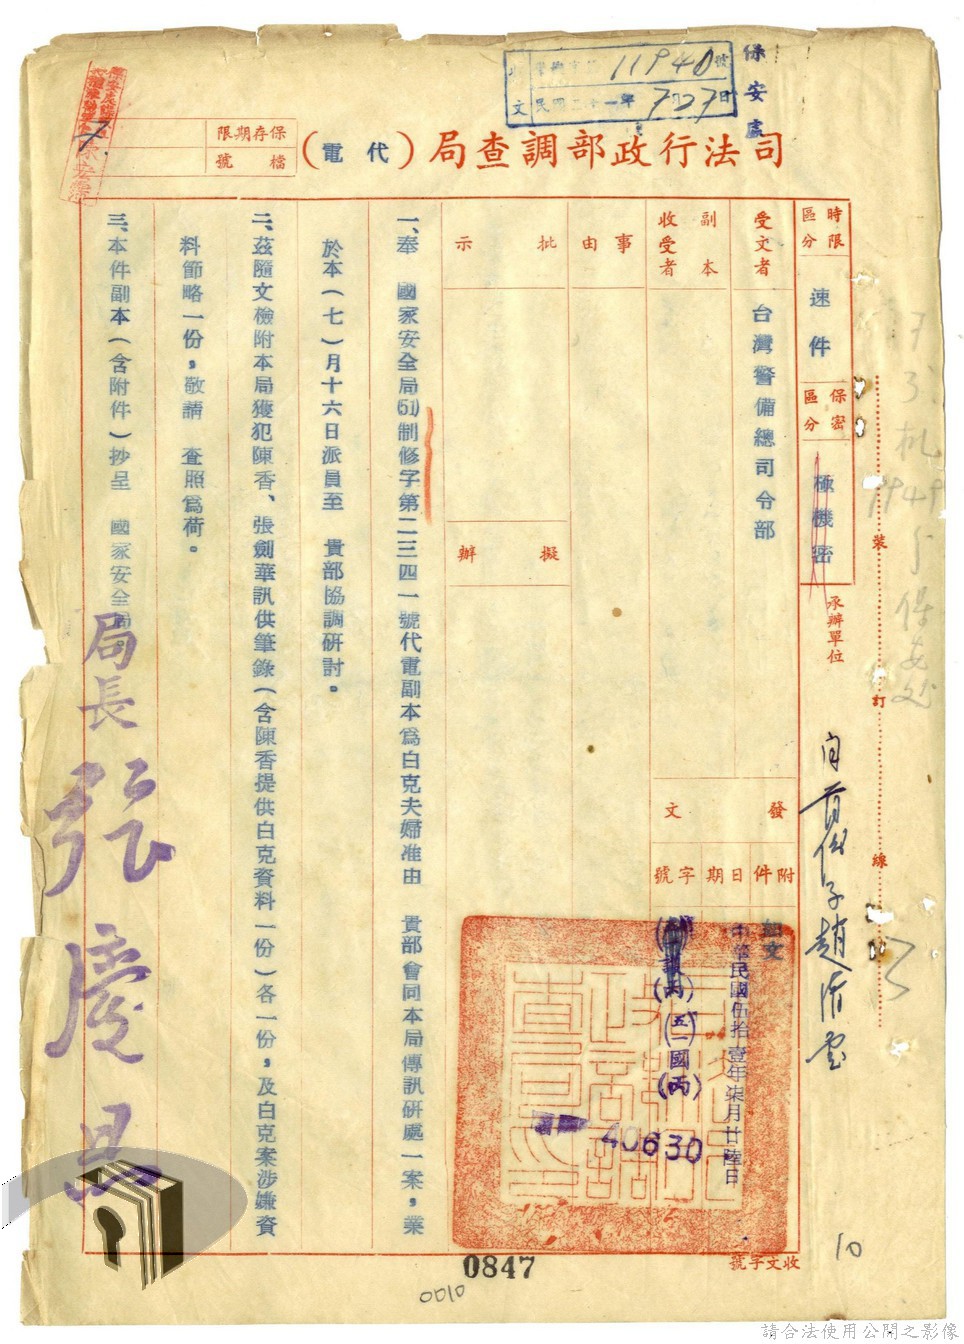 保安處
收文
11940號
民國五十一年 7月27日
保存期限
檔號
司法行政部調查局（代電）
時限區分
速件
保密區分
極機密
承辦單位
受文者
台灣警備總司令部
副本收受者
事由
批示
擬辦
發文
附件
日期
字號
如文
中華民國伍拾壹年柒月廿陸日
（五一）國（丙）
40630
一、奉　國家安全局(51)制修字第二三四一號代電副本為白克夫婦准由　貴部會同本局傳訊研處一案，業
於本（七）月十六日派員至　貴部協調研討。
二、茲隨文檢附本局獲犯陳香、張劍華訊供筆錄（含陳香提供白克資料一份）各一份，及白克案涉嫌資
料節略一份，敬請　查照為荷。
三、本件副本（含附件）抄呈　國家安全局
局長 張慶恩
裝
訂
線
收文字號
0847
0010
10
請合法使用公開之影像